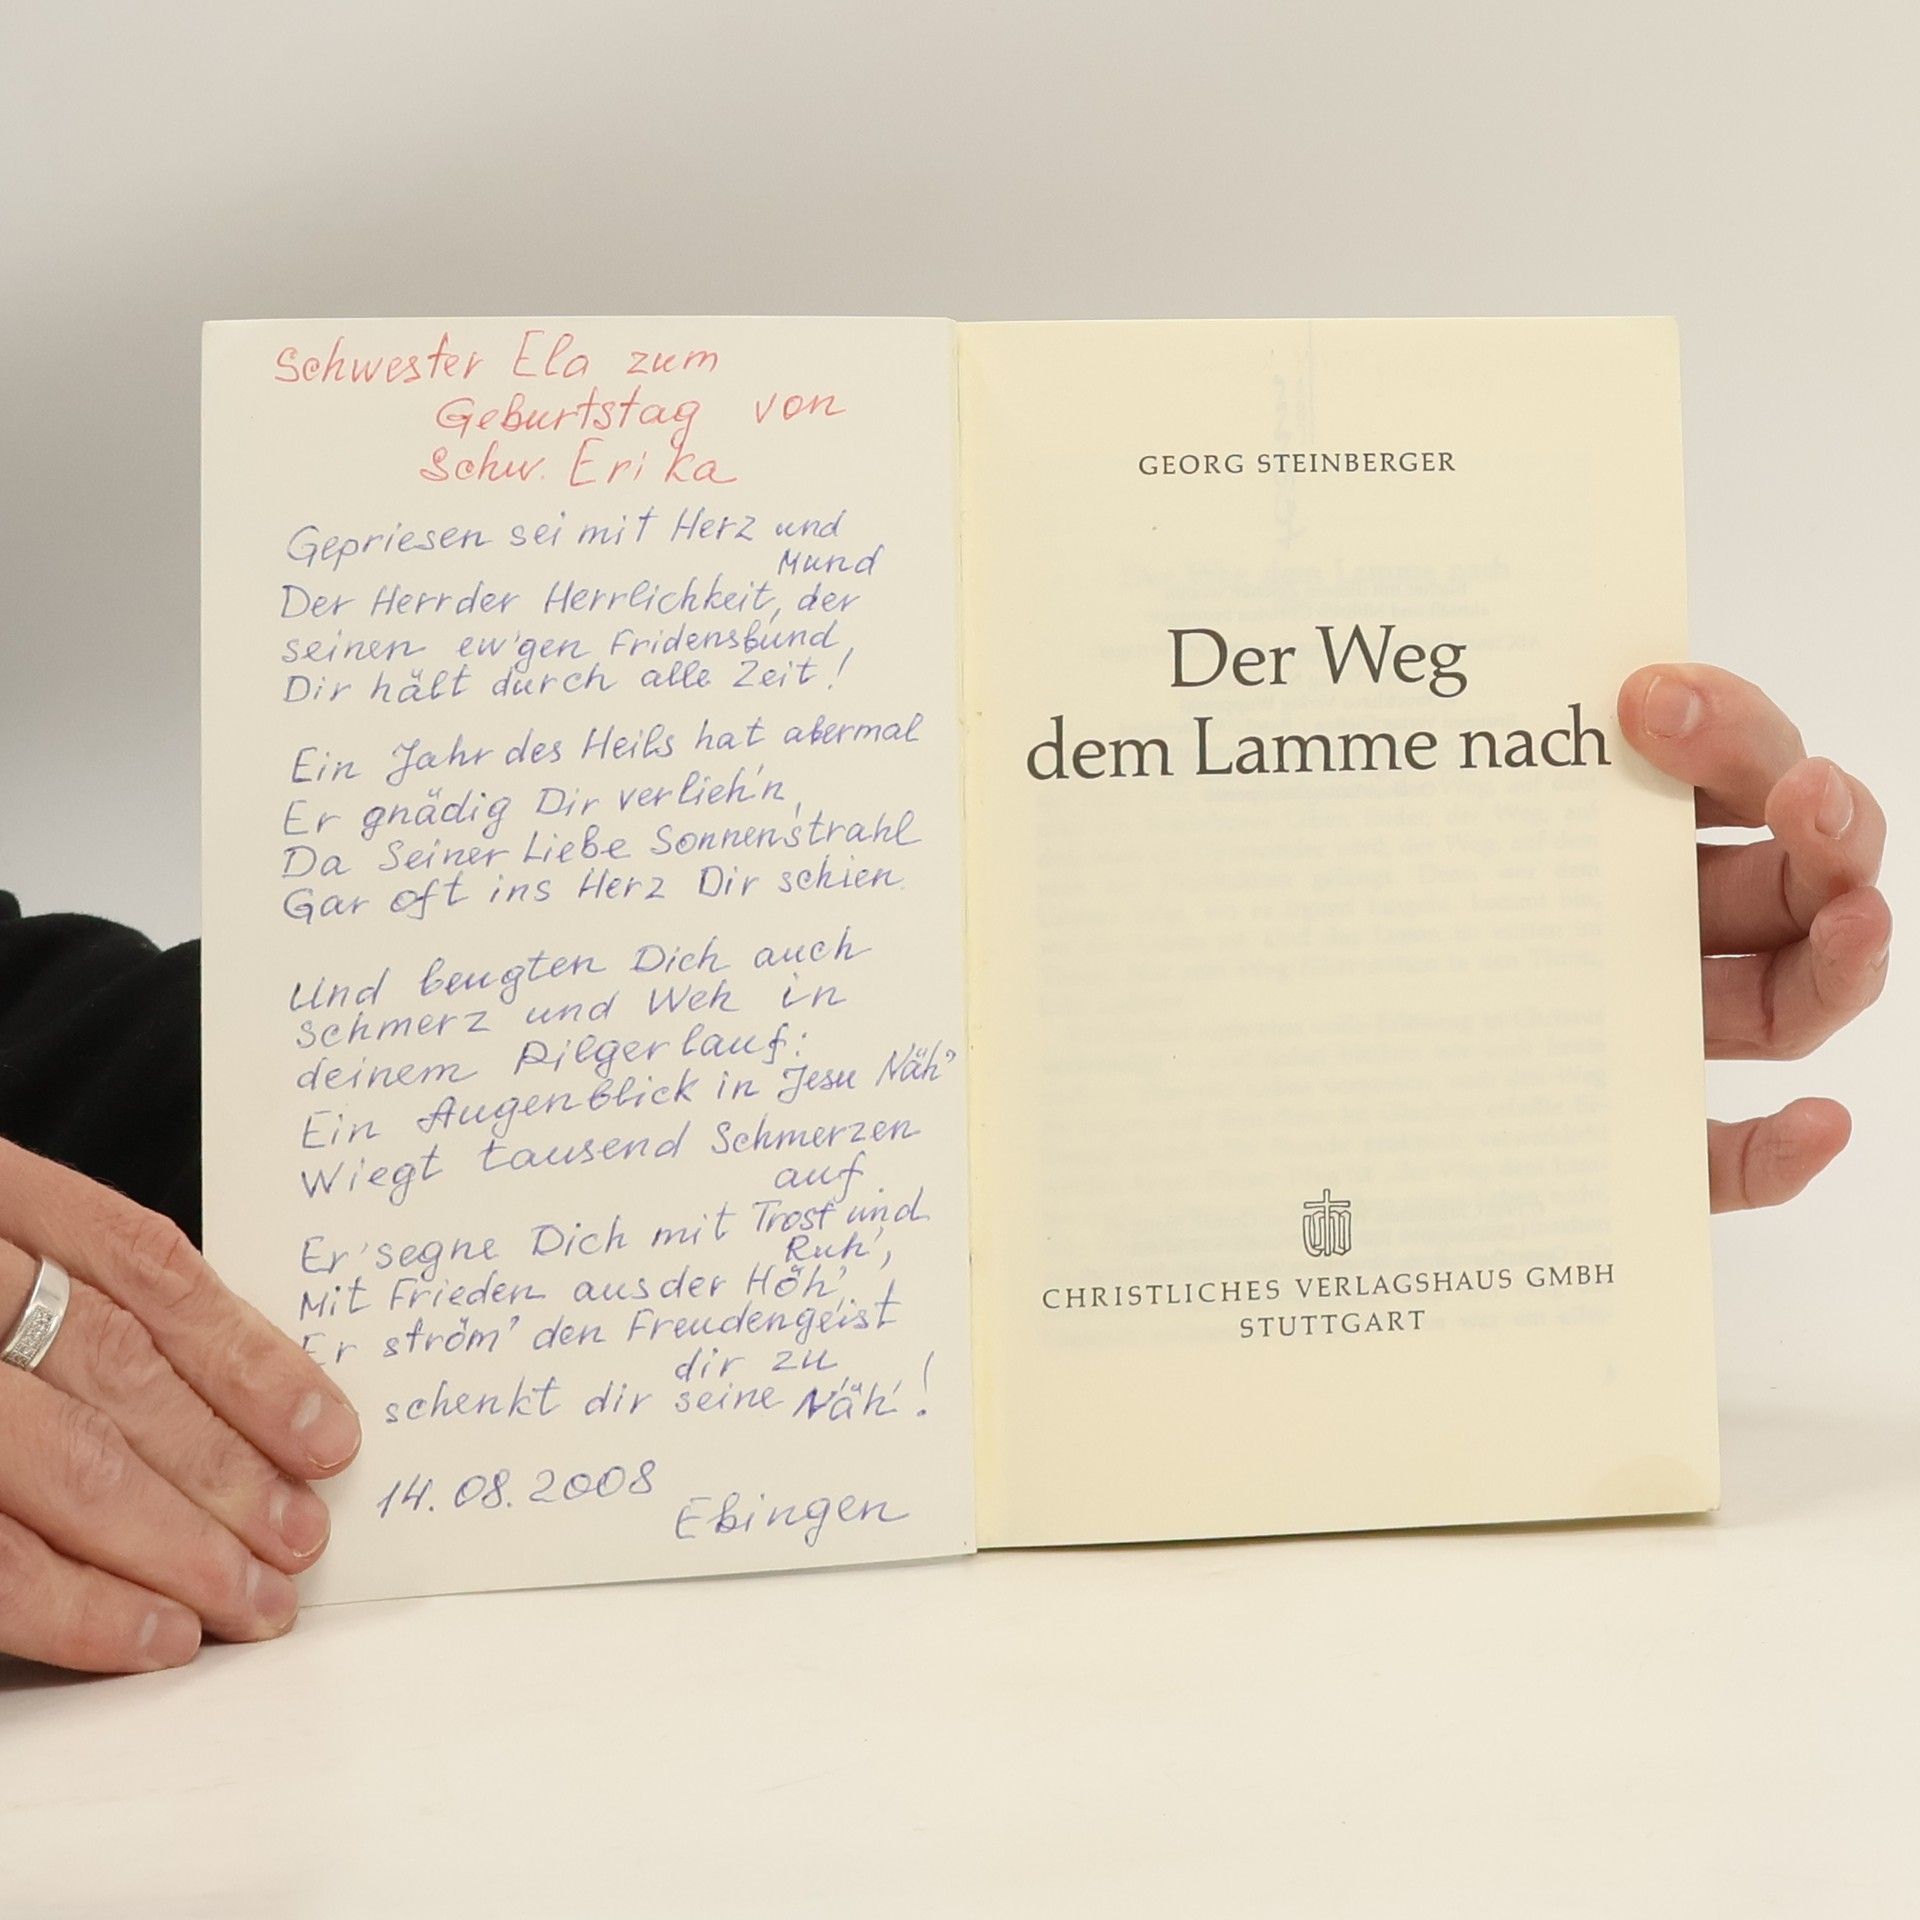 Schwester Ela zum
Geburtstag von
Schw. Erika
Gepriesen sei mit Herz und
Mund
Der Herr der Herrlichkeit, der
seinen ew'gen Fridensbund,
Dir hält durch alle Zeit!
Ein Jahr des Heils hat abermal
Er gnädig Dir verlieh'n,
Da Seiner Liebe Sonnenstrahl
Gar oft ins Herz Dir schien.
Und beugten Dich auch
Schmerz und Weh in
deinem Pilgerlauf:
Ein Augenblick in Jesu Näh'
Wiegt tausend Schmerzen
auf.
Er segne Dich mit Trost und
Ruh',
Mit Frieden aus der Höh',
Er ström' den Freudengeist
dir zu,
schenkt dir seine Näh'!
14.08.2008
Ebingen
GEORG STEINBERGER
Der Weg
dem Lamme nach
CHRISTLICHES VERLAGSHAUS GMBH
STUTTGART